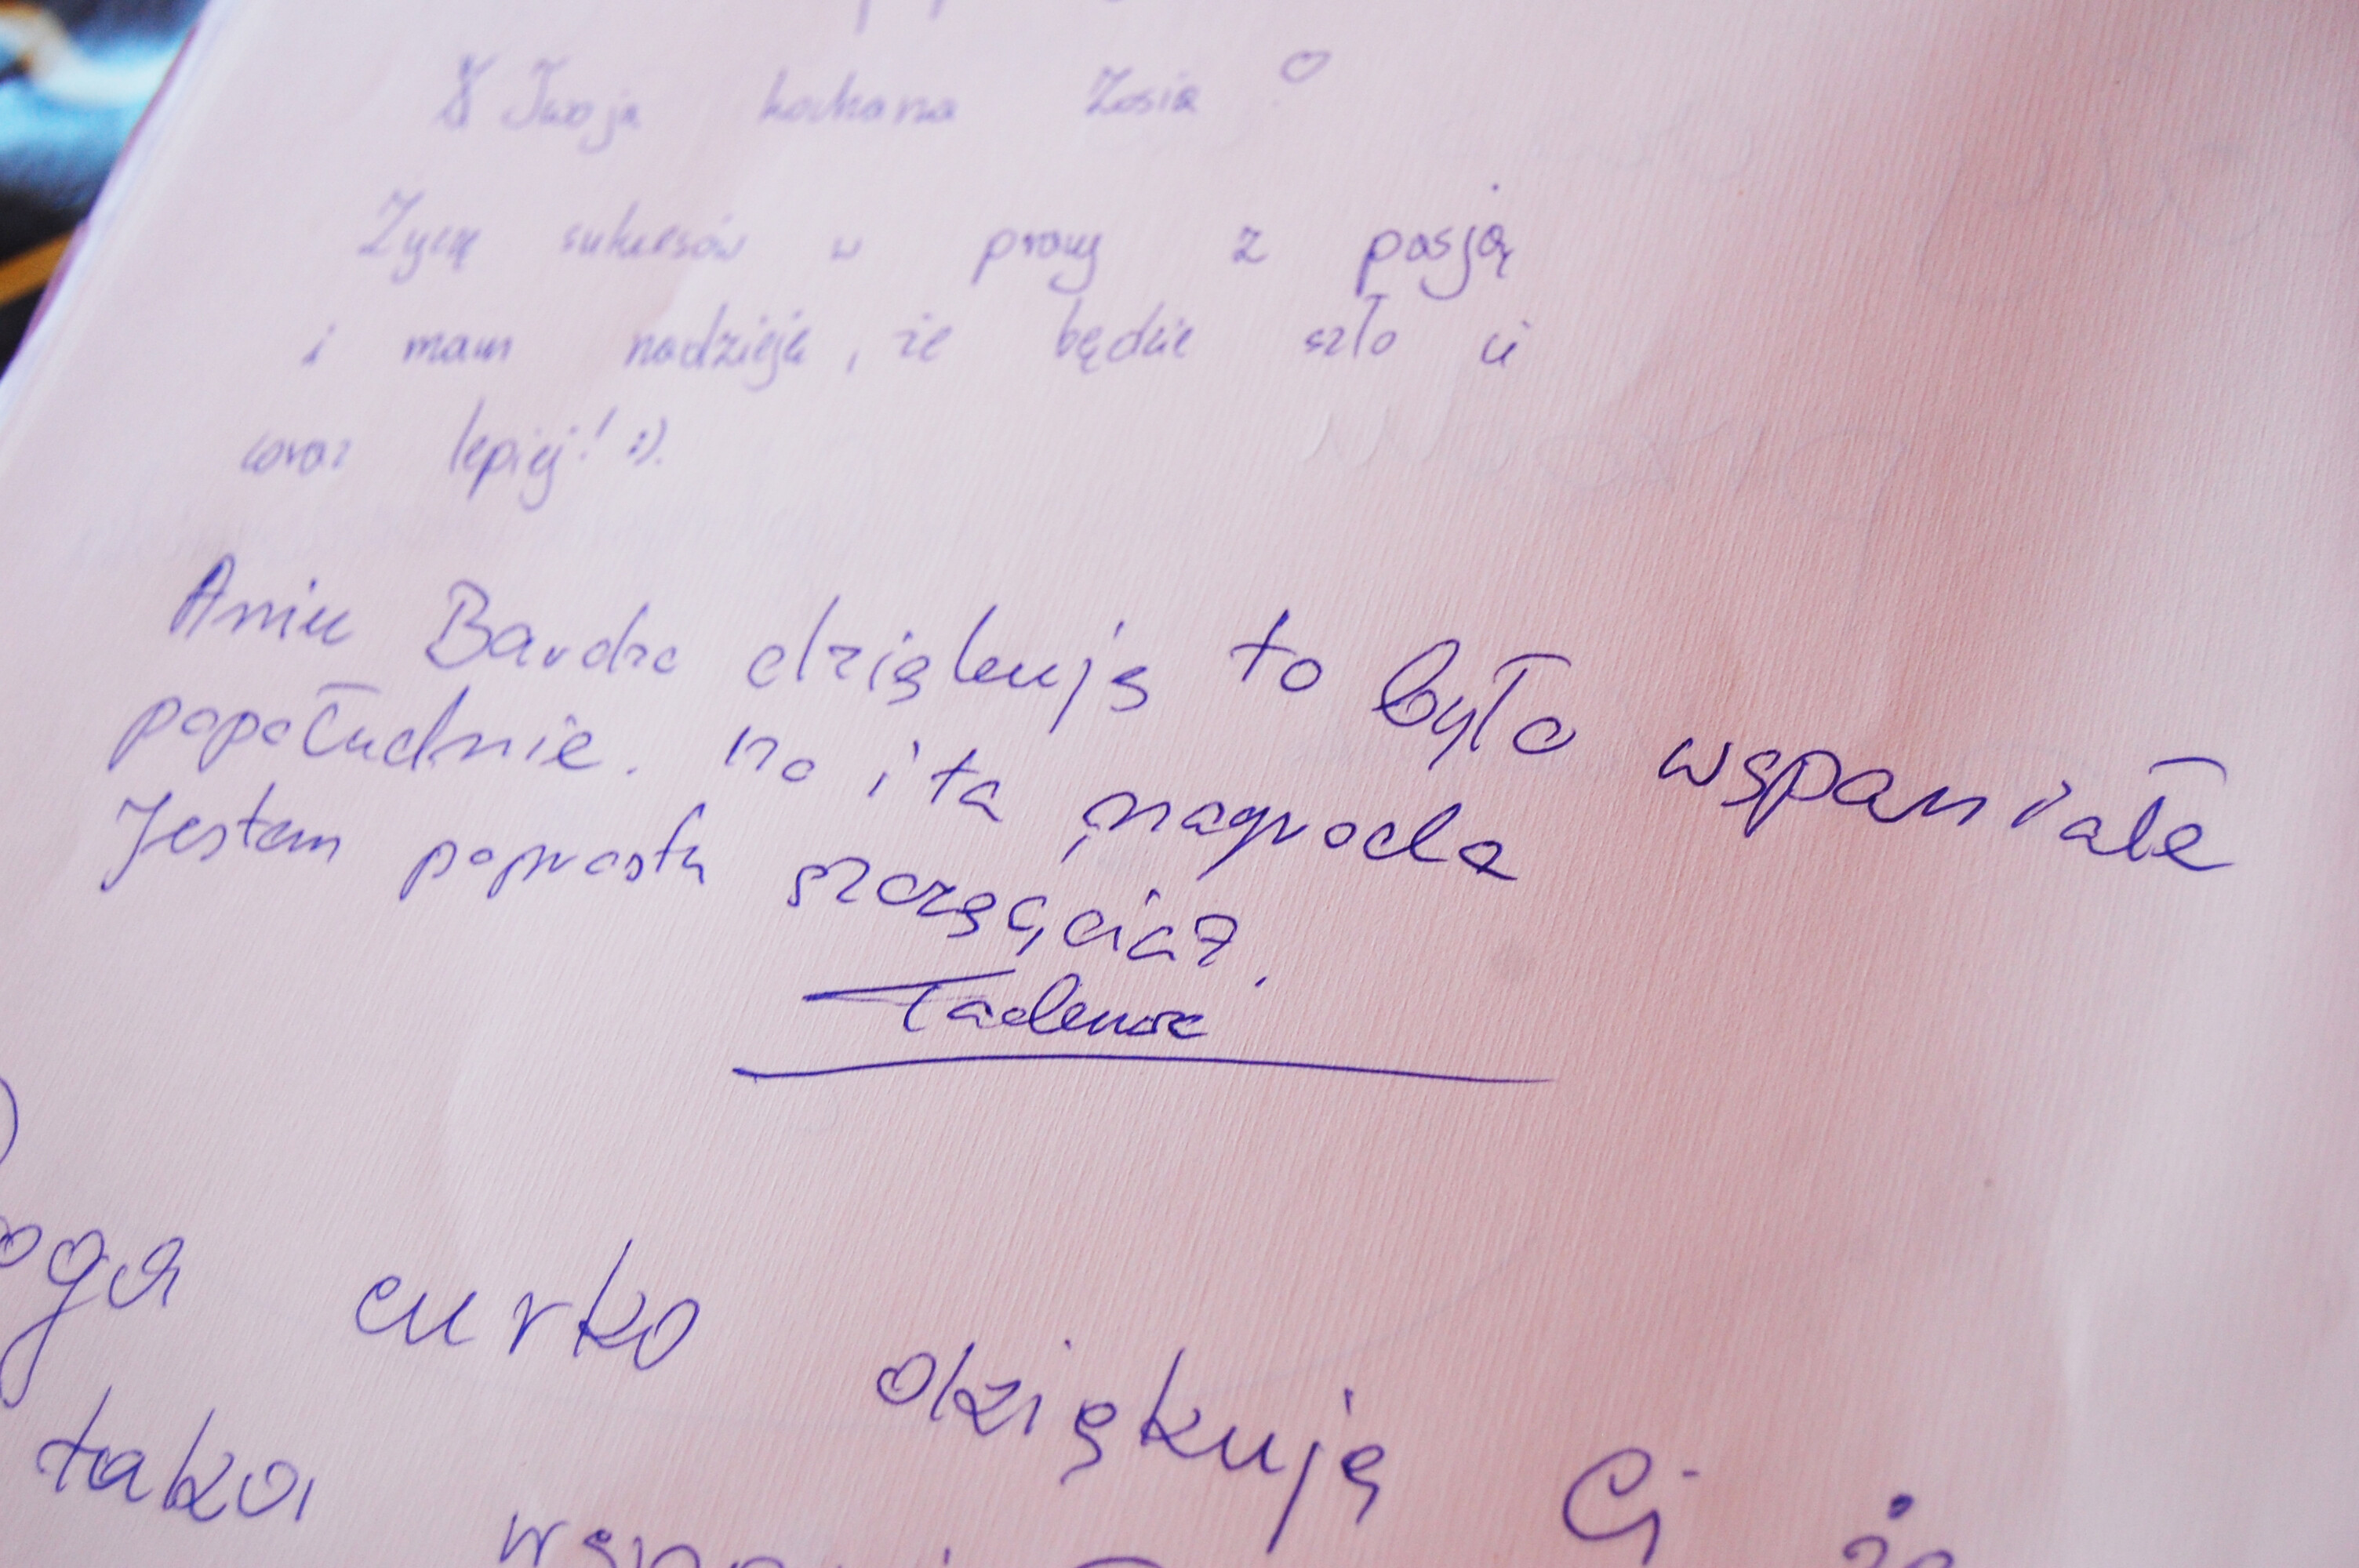 Twoja kochana Zosia ♡
Zyczę sukcesów w pracy z pasją
i mam nadzieję, że będzie szło ci
coraz lepiej! :).
Aniu Bardzo dziękuję to było wspaniałe
popołudnie. no i ta nagroda
Jestem poprostu
Tadeusz
curko dziękuję Ci że
taka